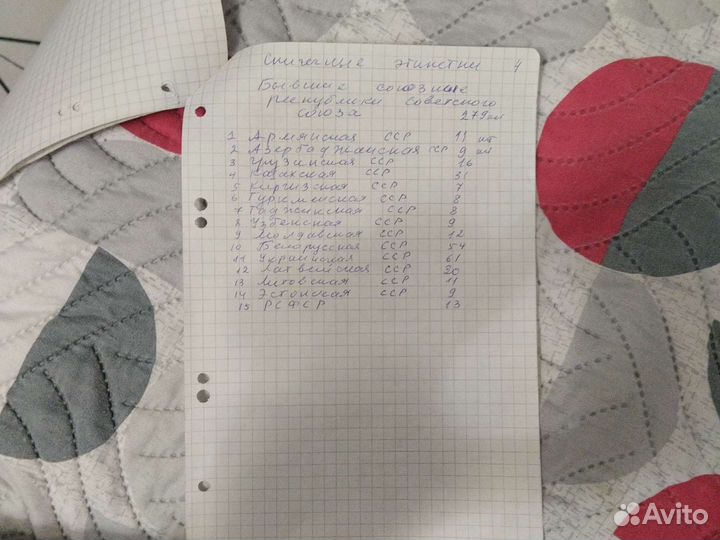 Спичечные этикетки 4
Бывшие союзные
республики советского
союза 279 шт
1 Армянская ССР 11 шт
2 Азербаджанская ССР 9 шт
3 Грузинская ССР 16
4 Казахская ССР 31
5 Киргизская ССР 7
6 Туркменская ССР 8
7 Таджикская ССР 8
8 Узбекская ССР 9
9 Молдавская ССР 12
10 Белорусская ССР 54
11 Украинская ССР 61
12 Латвийская ССР 20
13 Литовская ССР 11
14 Эстонская ССР 9
15 РСФСР 13
Avito